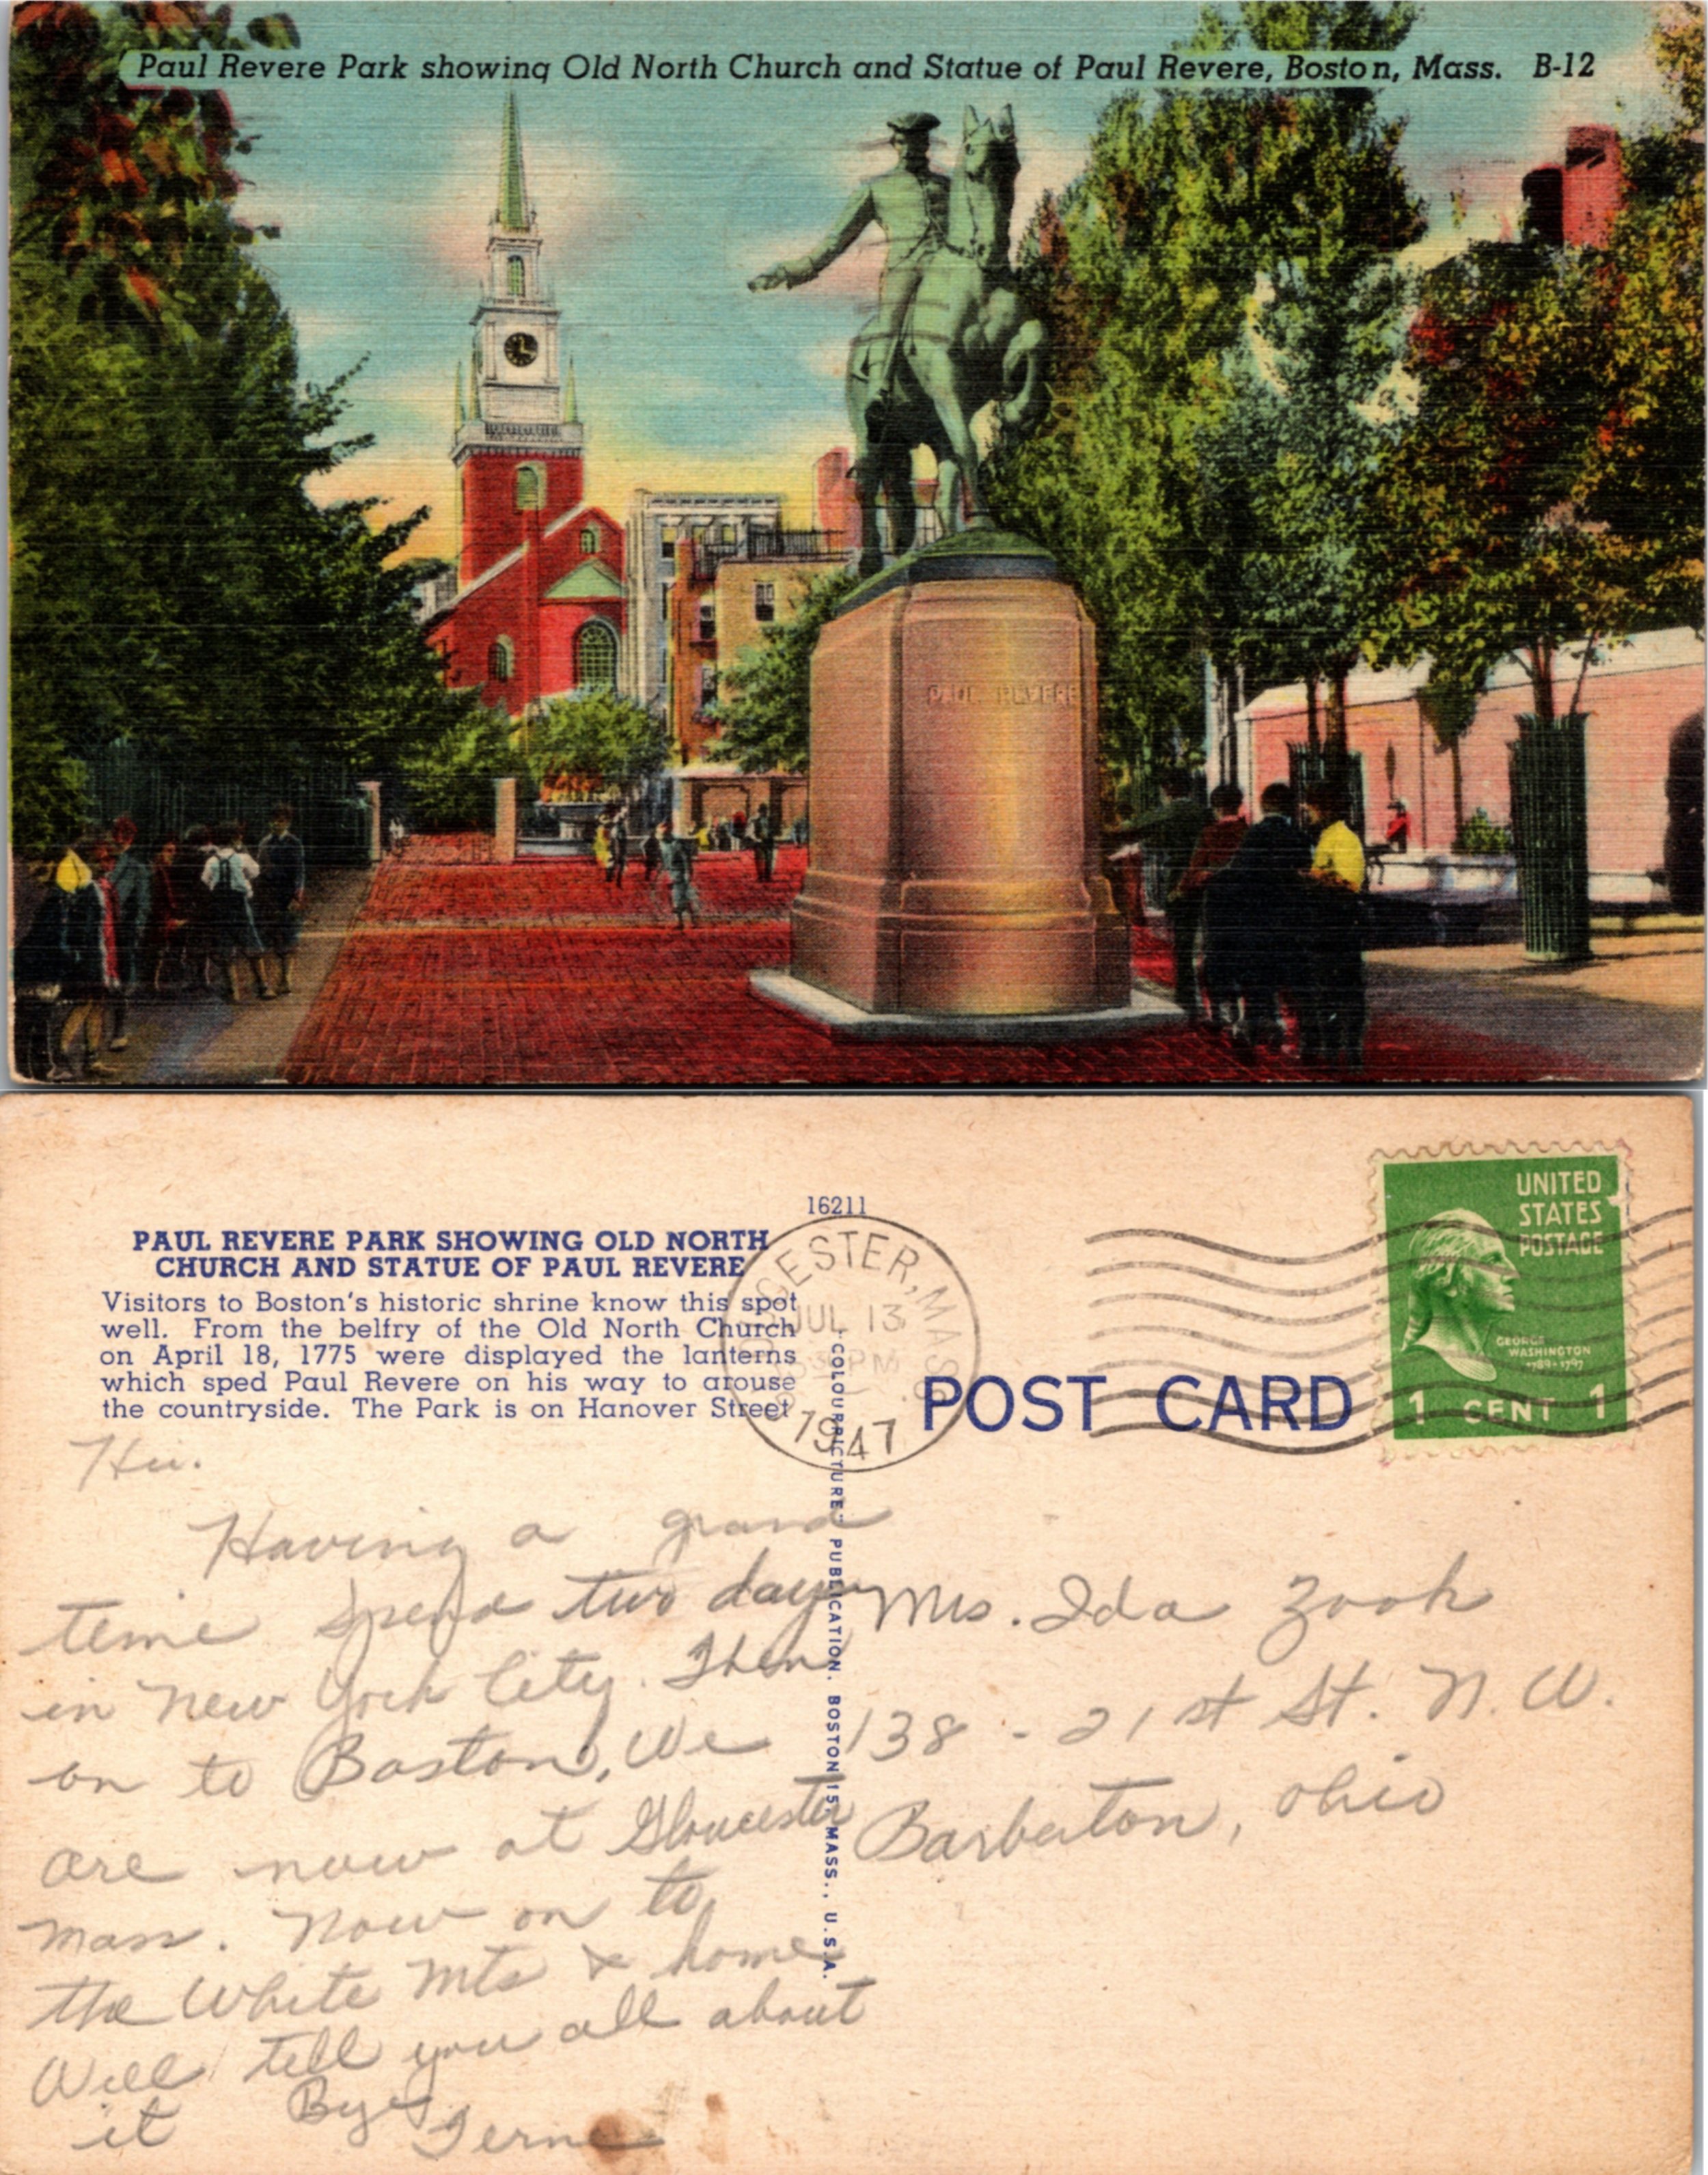 Paul Revere Park showing Old North Church and Statue of Paul Revere, Boston, Mass. B-12
PAUL REVERE
16211
PAUL REVERE PARK SHOWING OLD NORTH
CHURCH AND STATUE OF PAUL REVERE
Visitors to Boston's historic shrine know this spot
well. From the belfry of the Old North Church
on April 18, 1775 were displayed the lanterns
which sped Paul Revere on his way to arouse
the countryside. The Park is on Hanover Street
CESTER, MASS
JUL 13
PM
1947
UNITED
STATES
POSTAGE
GEORGE
WASHINGTON
1789-1797
1 CENT 1
POST CARD
COLOURPICTURE PUBLICATION, BOSTON 15, MASS., U.S.A.
Hi.
Having a grand
time spend two days
in New York City. Then
on to Boston, We
are now at Gloucester
Mass. Now on to
the White Mts & home
Will tell you all about
it Bye
Ferne
Mrs. Ida Zook
138 - 21st St. N.W.
Barberton, Ohio